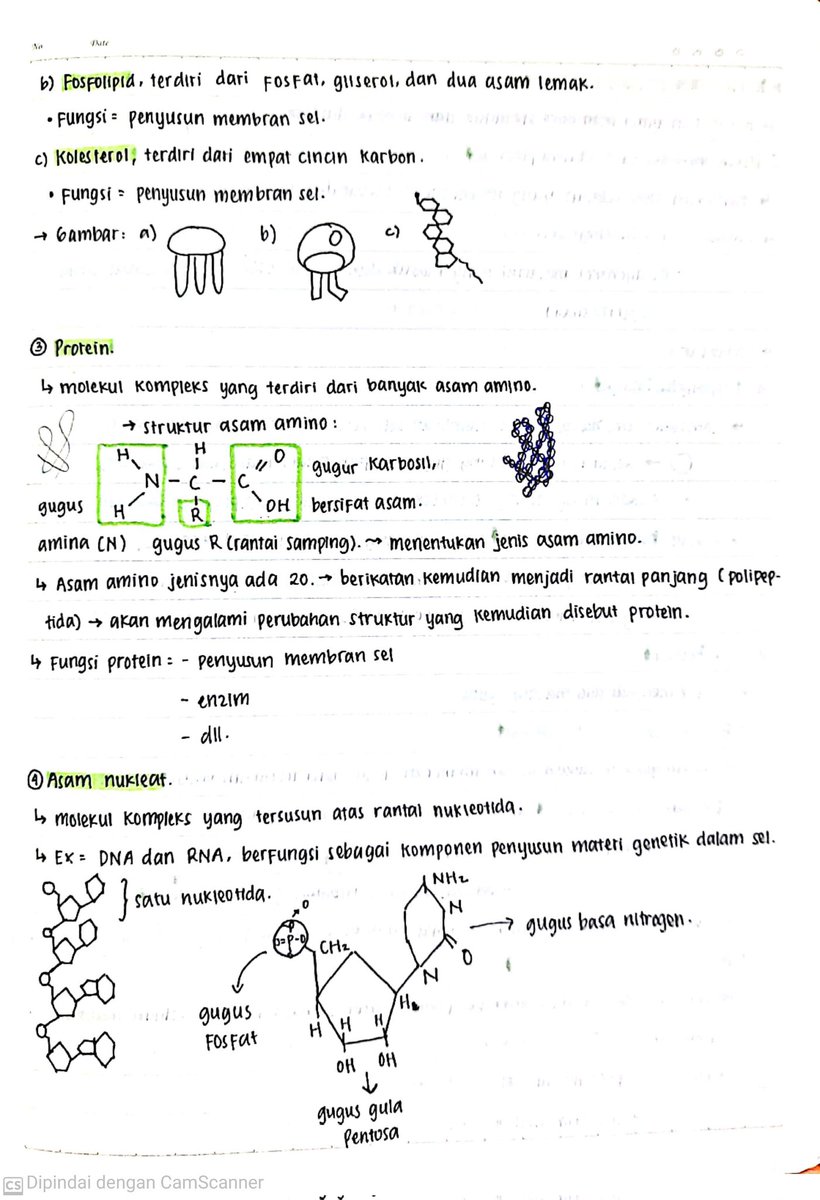 No Date
b) Fosfolipid, terdiri dari fosfat, gliserol, dan dua asam lemak.
• Fungsi = penyusun membran sel.
c) Kolesterol, terdiri dari empat cincin karbon.
• Fungsi = penyusun membran sel.
→ Gambar: a) b) c)
③ Protein.
↳ molekul kompleks yang terdiri dari banyak asam amino.
→ struktur asam amino:
H H O
N - C - C gugur karbosil,
gugus H R OH bersifat asam.
amina (N) gugus R (rantai samping). → menentukan jenis asam amino.
↳ Asam amino jenisnya ada 20. → berikatan kemudian menjadi rantai panjang (polipep-
tida) → akan mengalami perubahan struktur yang kemudian disebut protein.
↳ Fungsi protein = - penyusun membran sel
- enzim
- dll.
④ Asam nukleat.
↳ molekul kompleks yang tersusun atas rantai nukleotida.
↳ Ex = DNA dan RNA, berfungsi sebagai komponen penyusun materi genetik dalam sel.
} satu nukleotida.
NH2
N
→ gugus basa nitrogen.
O
O
O=P-O CH2
O
N
gugus fosfat
H H H
OH OH
gugus gula
pentosa
CS Dipindai dengan CamScanner